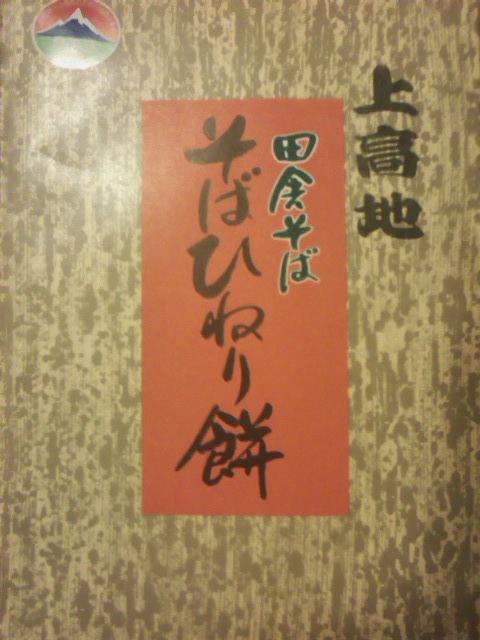 上高地
田舎そば
そばひねり餅